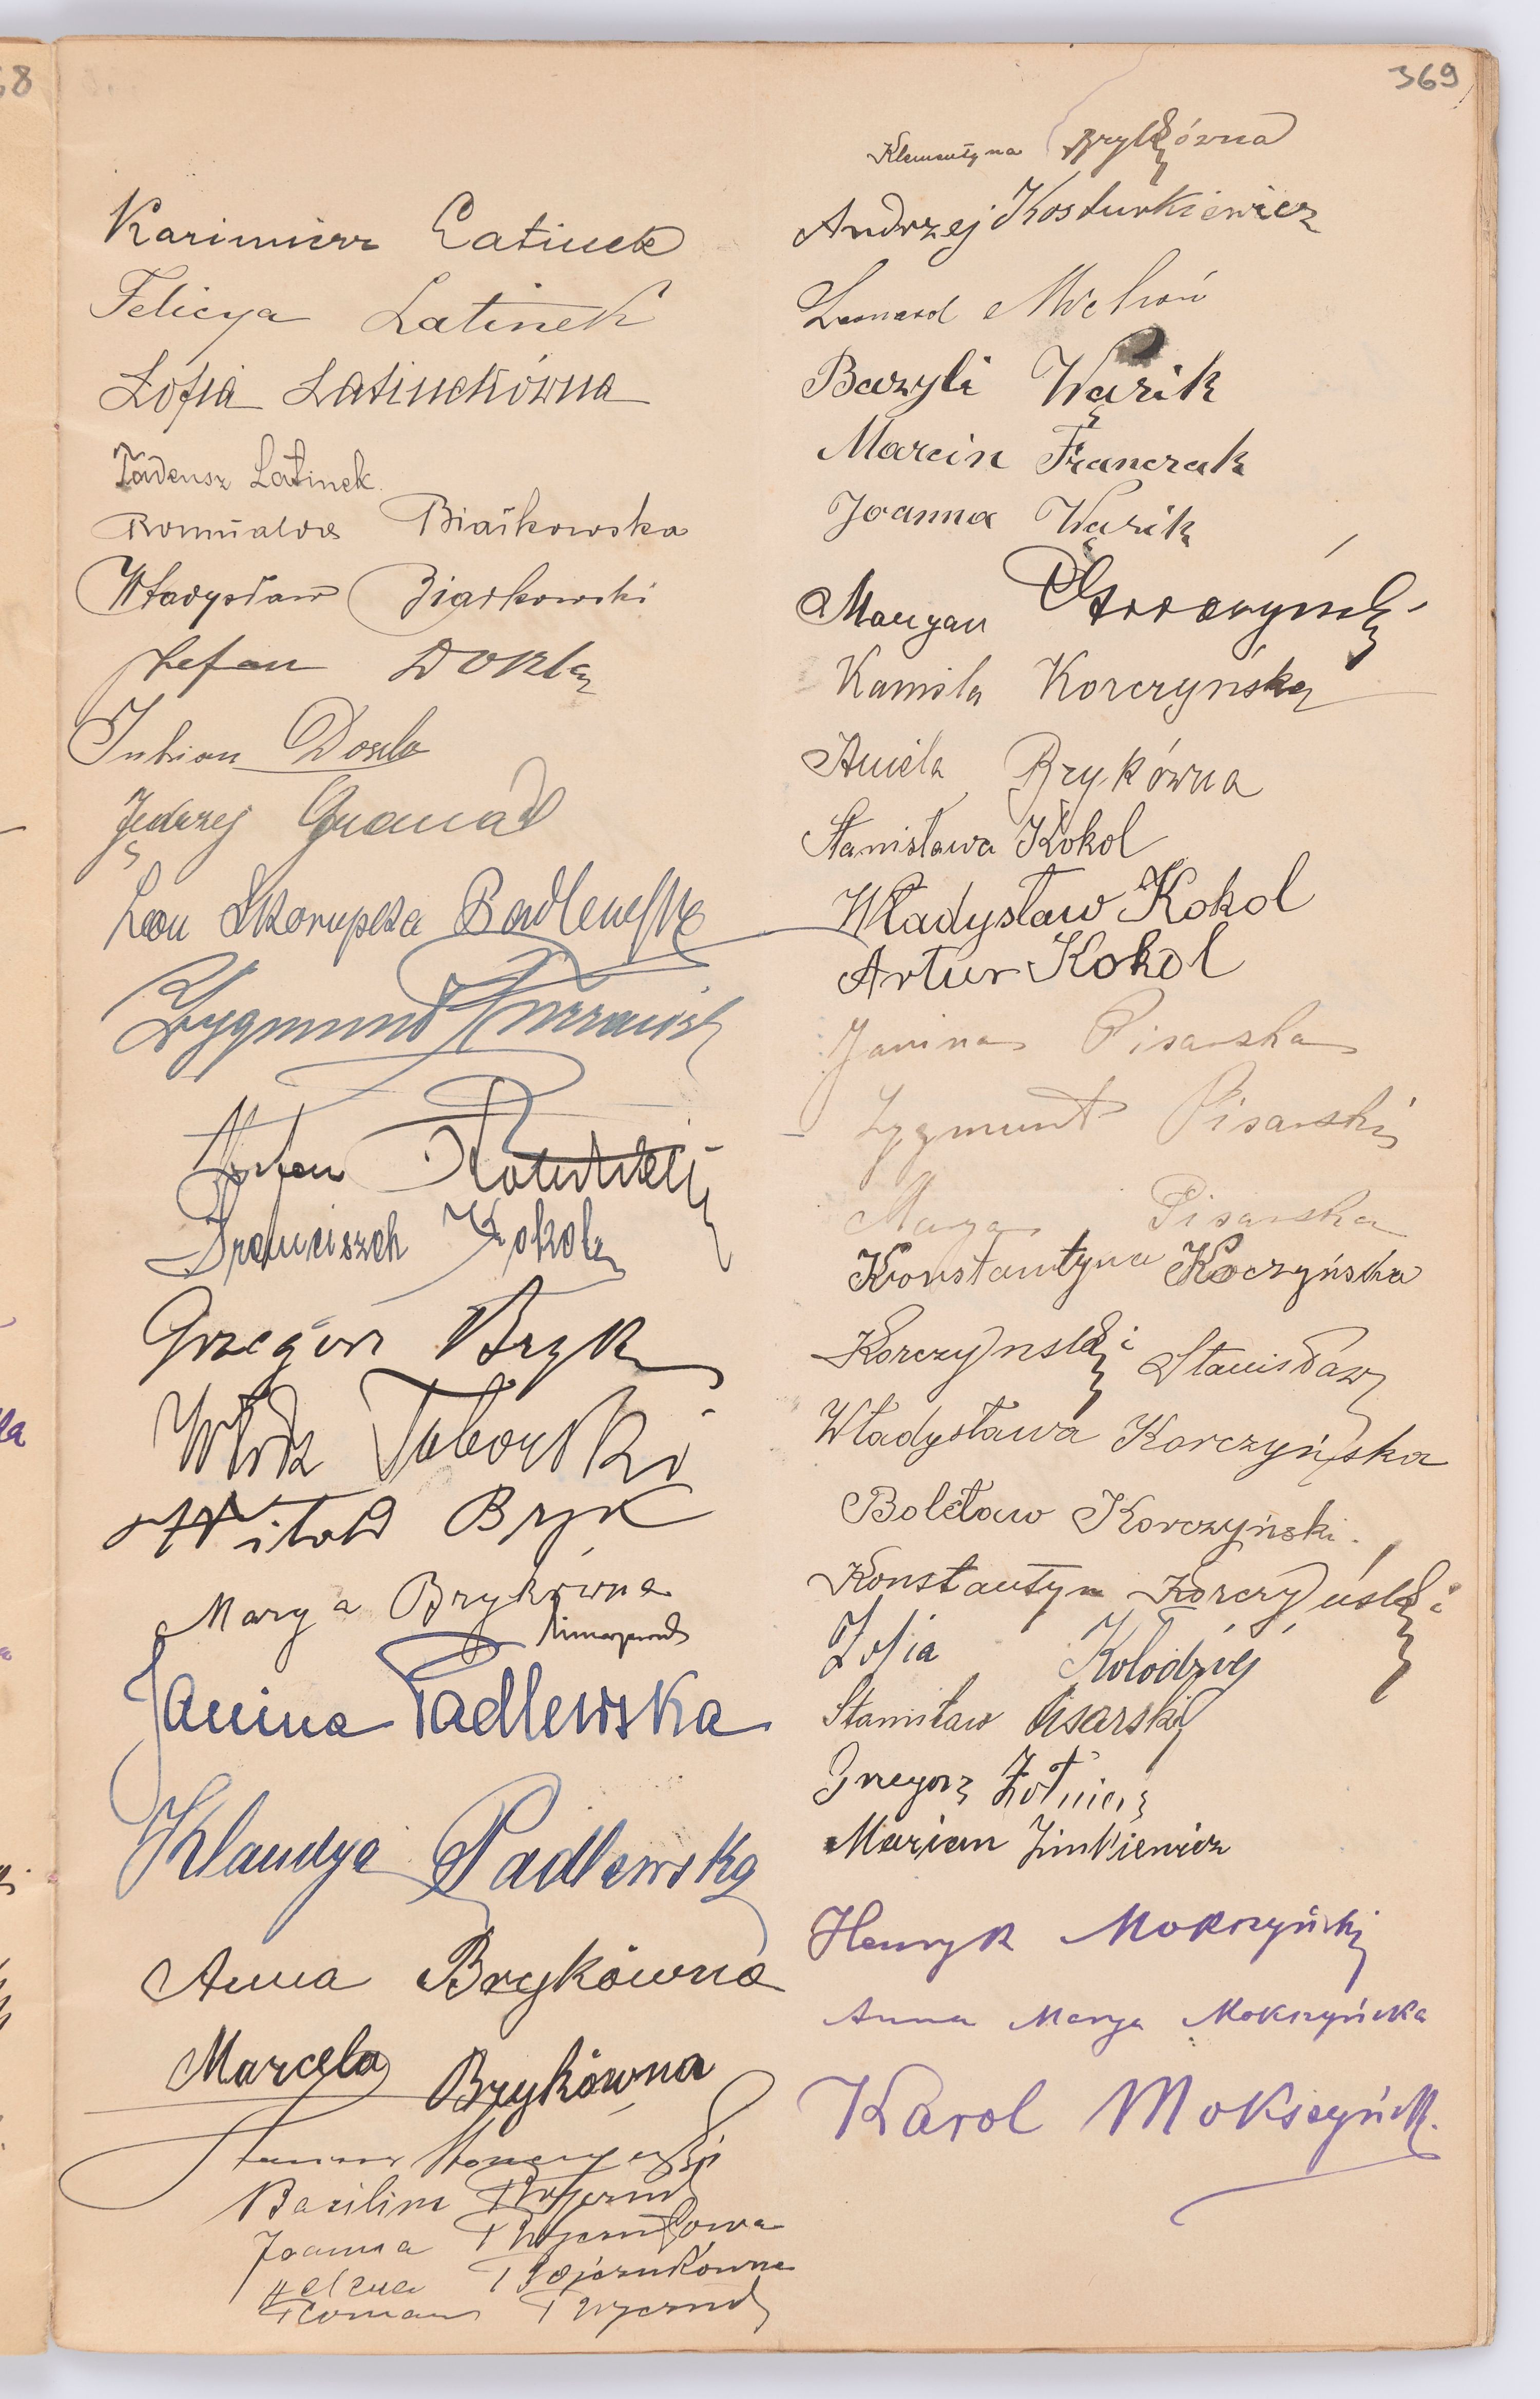 369
Kazimierz Latinek
Felicya Latinek
Zofia Latinekówna
Tadeusz Latinek
Romualda Białkowska
Władysław Białkowski
Stefan Dorla
Julian Dorla
Jędrzej Gramad
Leon Skorupka Padlewski
Zygmunt
Stefan
Franciszek Kokol
Grzegorz Bryk
Włodz Taborski
Witold Bryk
Marya Brykówna
Janina Padlewska
Klaudya Padlewska
Anna Brykówna
Marcela Brykówna
Bazilim
Joanna
Helena
Roman
Klementyna Brykówna
Andrzej Kosturkiewicz
Leonard
Bazyli Wąsik
Marcin Franczak
Joanna Wąsik
Maryan
Kamila Korczyńska
Aniela Brykówna
Stanisława Kokol
Władysław Kokol
Artur Kokol
Janina Pisarska
Zygmunt Pisarski
Marya Pisarska
Konstantyna Koczyńska
Korczyński Stanisław
Władysława Korczyńska
Bolesław Korczyński.
Konstantyn Korczyński
Zofia Kołodziéj
Stanisław Pisarski
Grzegorz Żołnierz
Marian Zinkiewicz
Henryk Mokrzyński
Anna Marya Mokrzyńska
Karol Mokrzyński